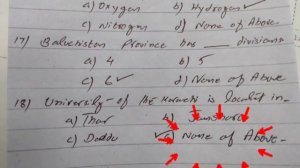 a) Oxygen b) Hydrogen
c) Nitrogen d) None of Above
17) Baluchistan Province has ___ divisions
a) 4 b) 5
c) 6 d) None of Above
18) University of the Karachi is located in-
a) Thar b) Jamshoro
c) Daddu d) None of Above-